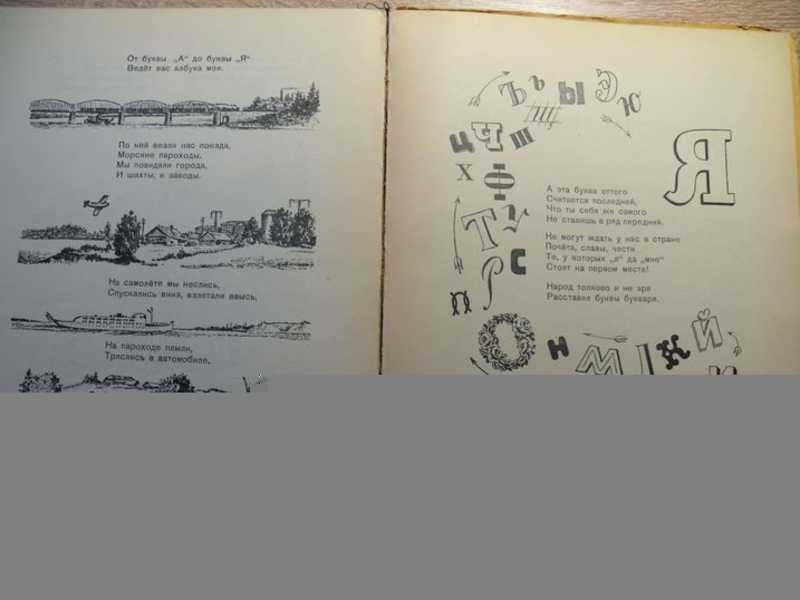 От буквы „А“ до буквы „Я“
Ведёт вас азбука моя.
По ней везли нас поезда,
Морские пароходы.
Мы повидали города,
И шахты, и заводы.
На самолёте мы неслись,
Спускались вниз, взлетали ввысь,
На пароходе плыли,
Тряслись в автомобиле,
Ъ Ь Ы Э Ю
Щ
Ц Ч Ш
Я
Х Ф
А эта буква оттого
Считается последней,
Что ты себя же самого
Не ставишь в ряд передний.
Т У
Не могут ждать у нас в стране
Почёта, славы, чести
Те, у которых „я“ да „мне“
Стоят на первом месте!
Р С
П
Народ толково и не зря
Расставил буквы букваря.
О Н М Л К Й